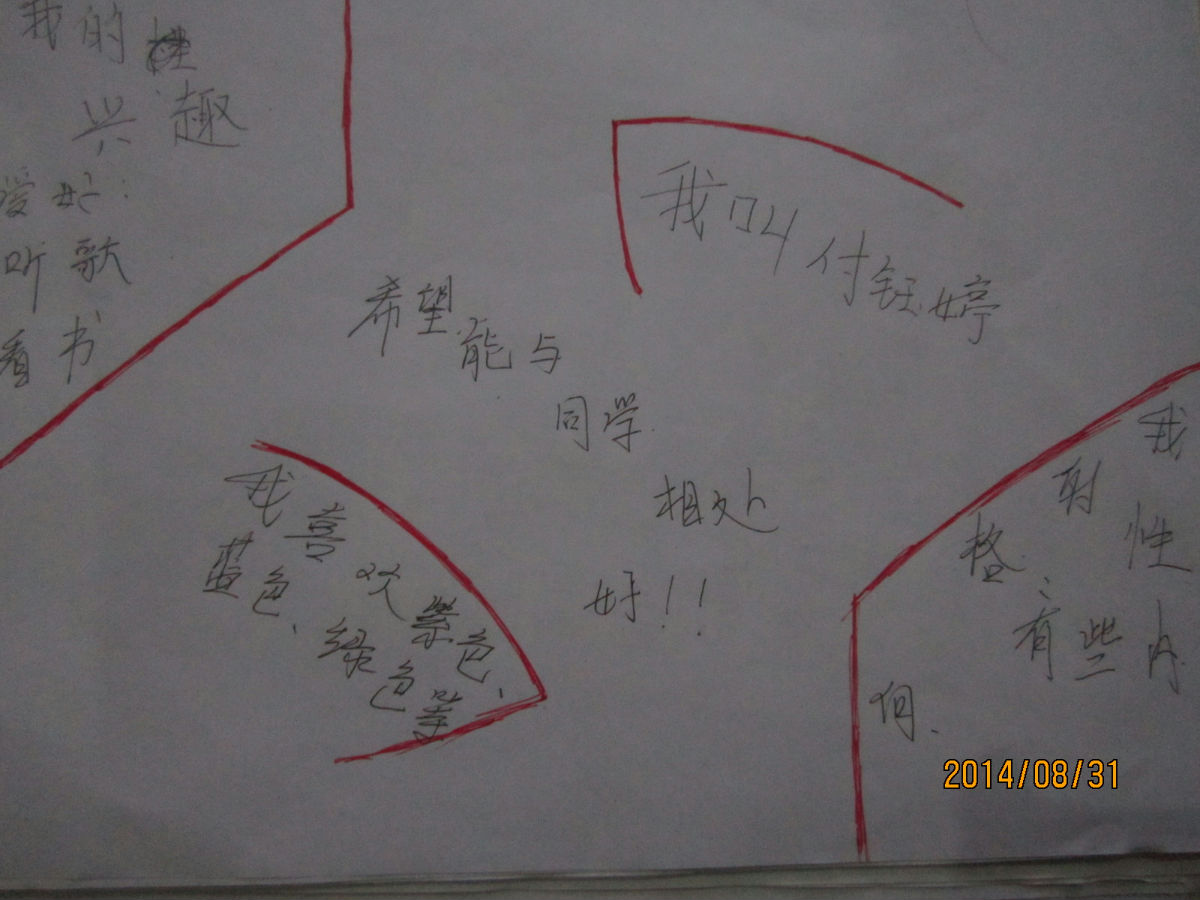 我的
兴趣
爱好:
听歌
看书
我叫付钰婷
希望能与
同学
相处
好!!
我喜欢紫色、
蓝色、绿色等
我
的性
格、
有些内
向.
2014/08/31